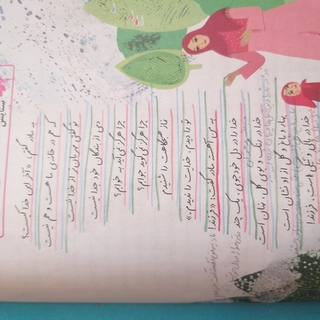 ستایش
به مادر گفتم: «آخر این خدا کیست؟
که هم در خانه‌ی ما هست و هم نیست
تو گفتی مهربان‌تر از خدا نیست
دمی از بندگان خود جدا نیست
چرا هرگز نمی‌آید به خوابم؟
چرا هرگز نمی‌گوید جوابم؟
نماز صبحگاهت را شنیدم
تو را دیدم، خدایت را ندیدم.»
به من آهسته مادر گفت: «فرزند!
خدا را در دل خود جوی، یک چند
خدا در رنگ و بوی گل، نهان است
بهار و باغ و گل از او نشان است
خدا در پاکی و نیکی است، فرزند!